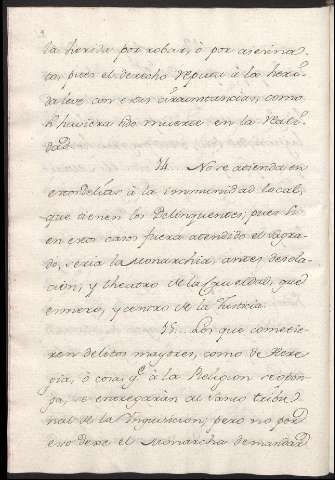 la herida por robar, ò por asesina-
to, pues el derecho reputa à la heri-
da leve con estas circunstancias, como
si huviera sido muerte en la Reali-
dad.
14. No se atienda en
estos delitos à la immunidad local,
que tienen los Delinquentes, pues si
en estos casos fuera atendido el sagra-
do, seria la Monarchia, antes desola-
cion, y theatro de la Crueldad, que
esmero, y centro de la Justicia.
15. Los que cometie-
ren delitos mayores, como de Here-
gia, ò cosa, q.e à la Religion se opon-
ga, se entregaràn al santo tribu-
nal de la Inquisicion; pero no por
eso dexe el Monarcha demandar